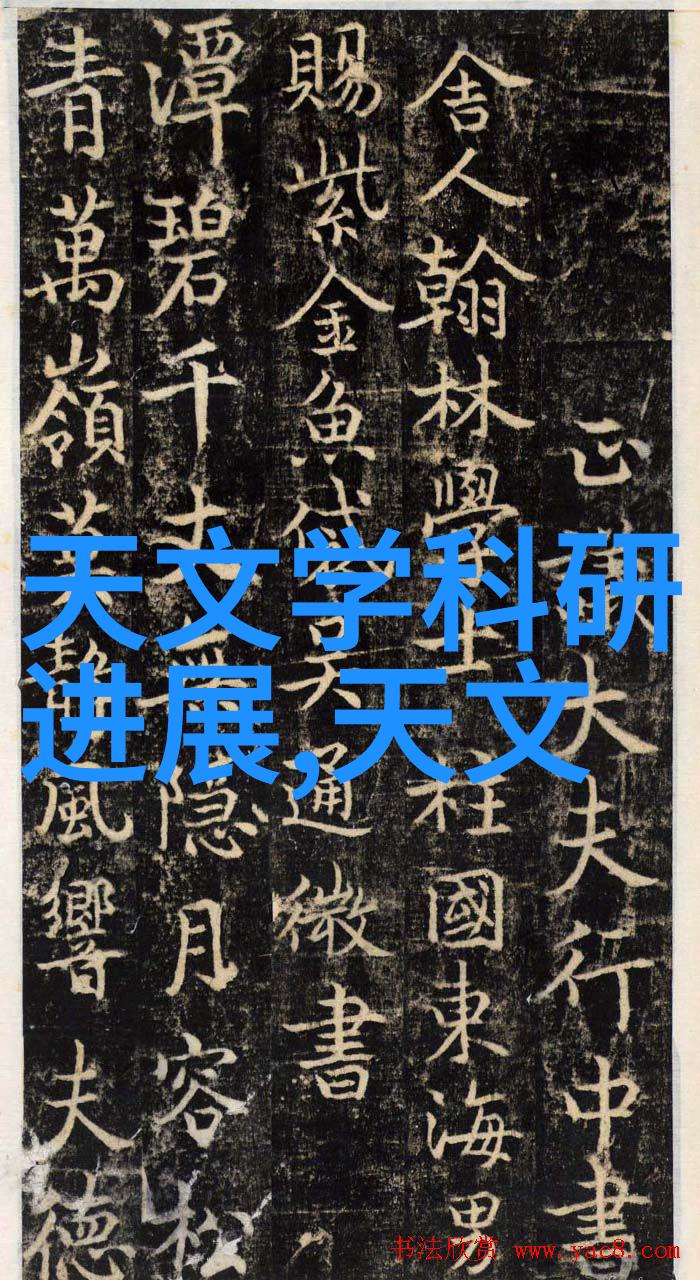 正議大夫行中書
舍人翰林學士柱國東海男
賜紫金魚袋吴通微書
潭碧千丈無隐月容松
青萬嶺葉静風響夫德
天文学科研
进展,天文
书法欣赏 www.yac8.com